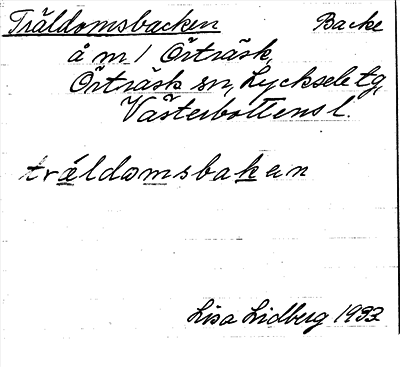 Träldomsbacken Backe
å m / Örträsk,
Örträsk sn, Lycksele tg,
Västerbottens l.
träldomsbakan
Lisa Lidberg 1932